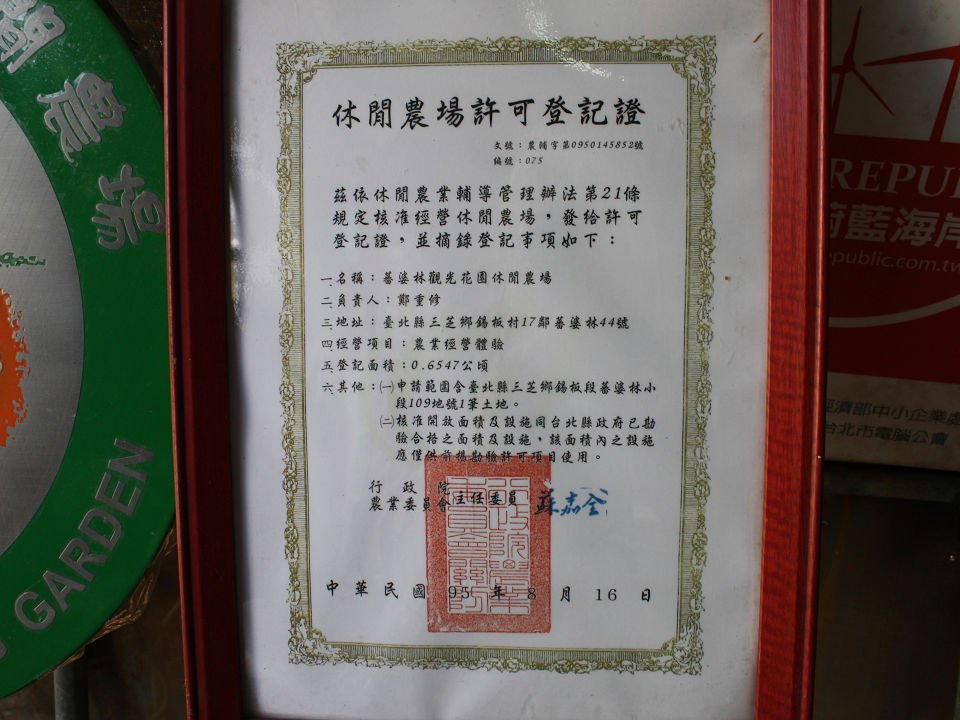 農場
GARDEN
休閒農場許可登記證
文號：農輔字第0950145852號
編號：075
茲依休閒農業輔導管理辦法第21條
規定核准經營休閒農場，發給許可
登記證，並摘錄登記事項如下：
一、名稱：蕃婆林觀光花園休閒農場
二、負責人：鄭重修
三、地址：臺北縣三芝鄉錫板村17鄰蕃婆林44號
四、經營項目：農業經營體驗
五、登記面積：0.6547公頃
六、其他：㈠申請範圍含臺北縣三芝鄉錫板段蕃婆林小
段109地號1筆土地。
㈡核准開放面積及設施同台北縣政府已勘
驗合格之面積及設施，該面積內之設施
應僅供前揭勘驗許可項目使用。
行政院
農業委員會主任委員 蘇嘉全
中華民國 95 年 8 月 16 日
REPU
蔚藍海岸
epublic.com.tw
經濟部中小企業處
台北市電腦公會